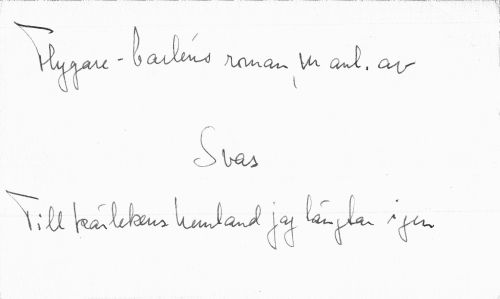 Flygare-Carléns roman, m anl. av
Svas
Till kärlekens hemland jag längtar igen